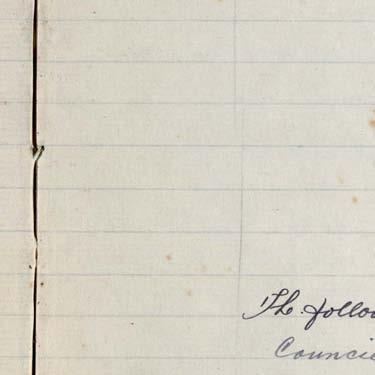 The follow
Counci